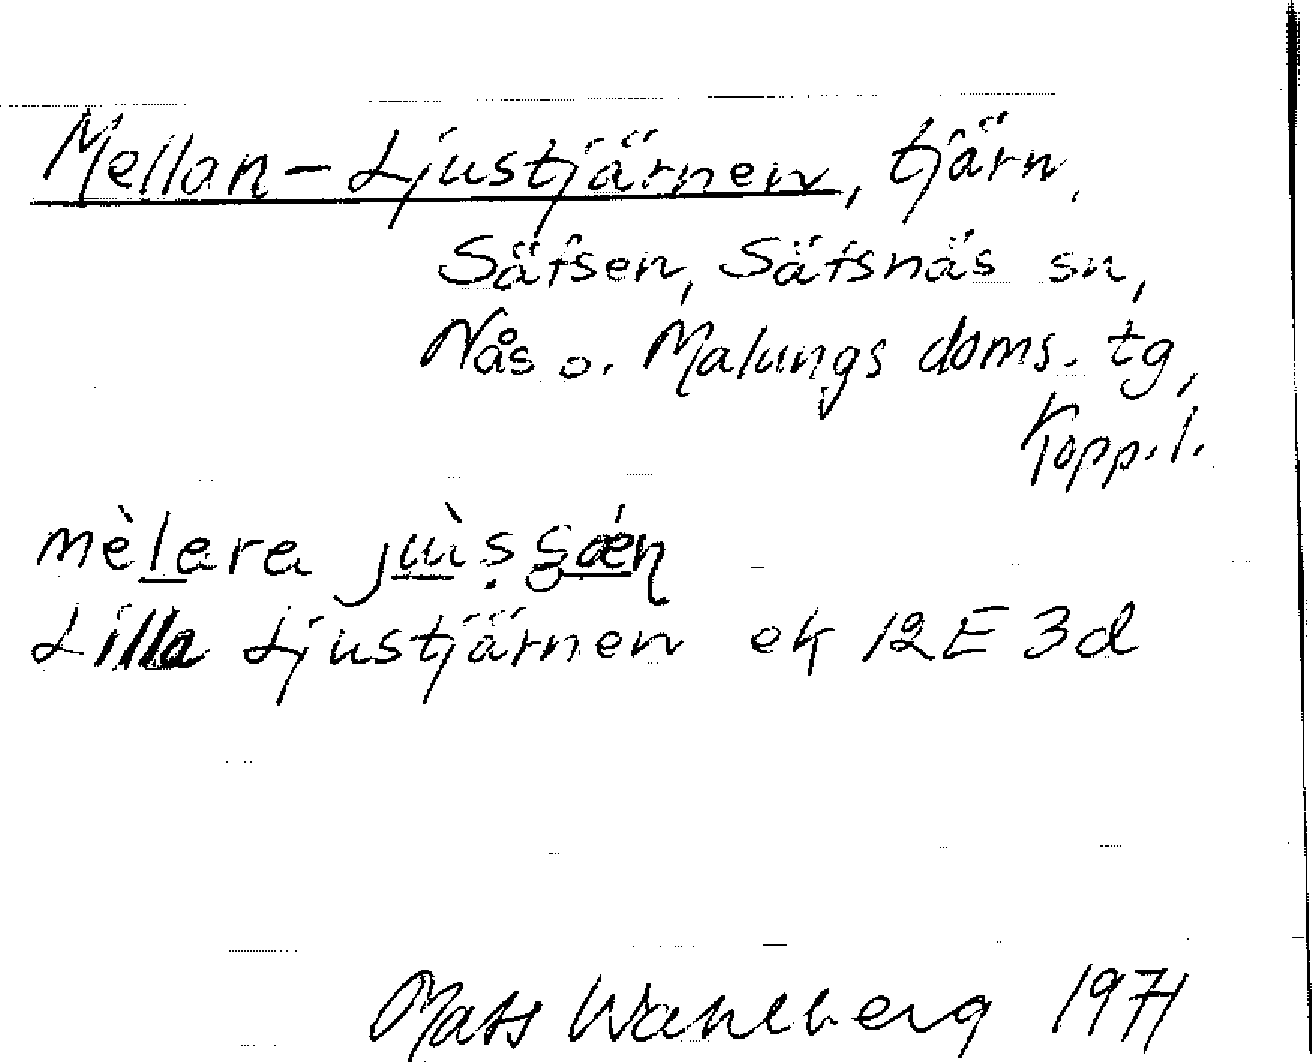 Mellan-Ljustjärnen, tjärn,
Säfsen, Säfsnäs sn,
Nås o. Malungs doms. tg,
Kopp. l.
mèlara
Lilla Ljustjärnen ek 12E 3d
Mats Wahlberg 1971